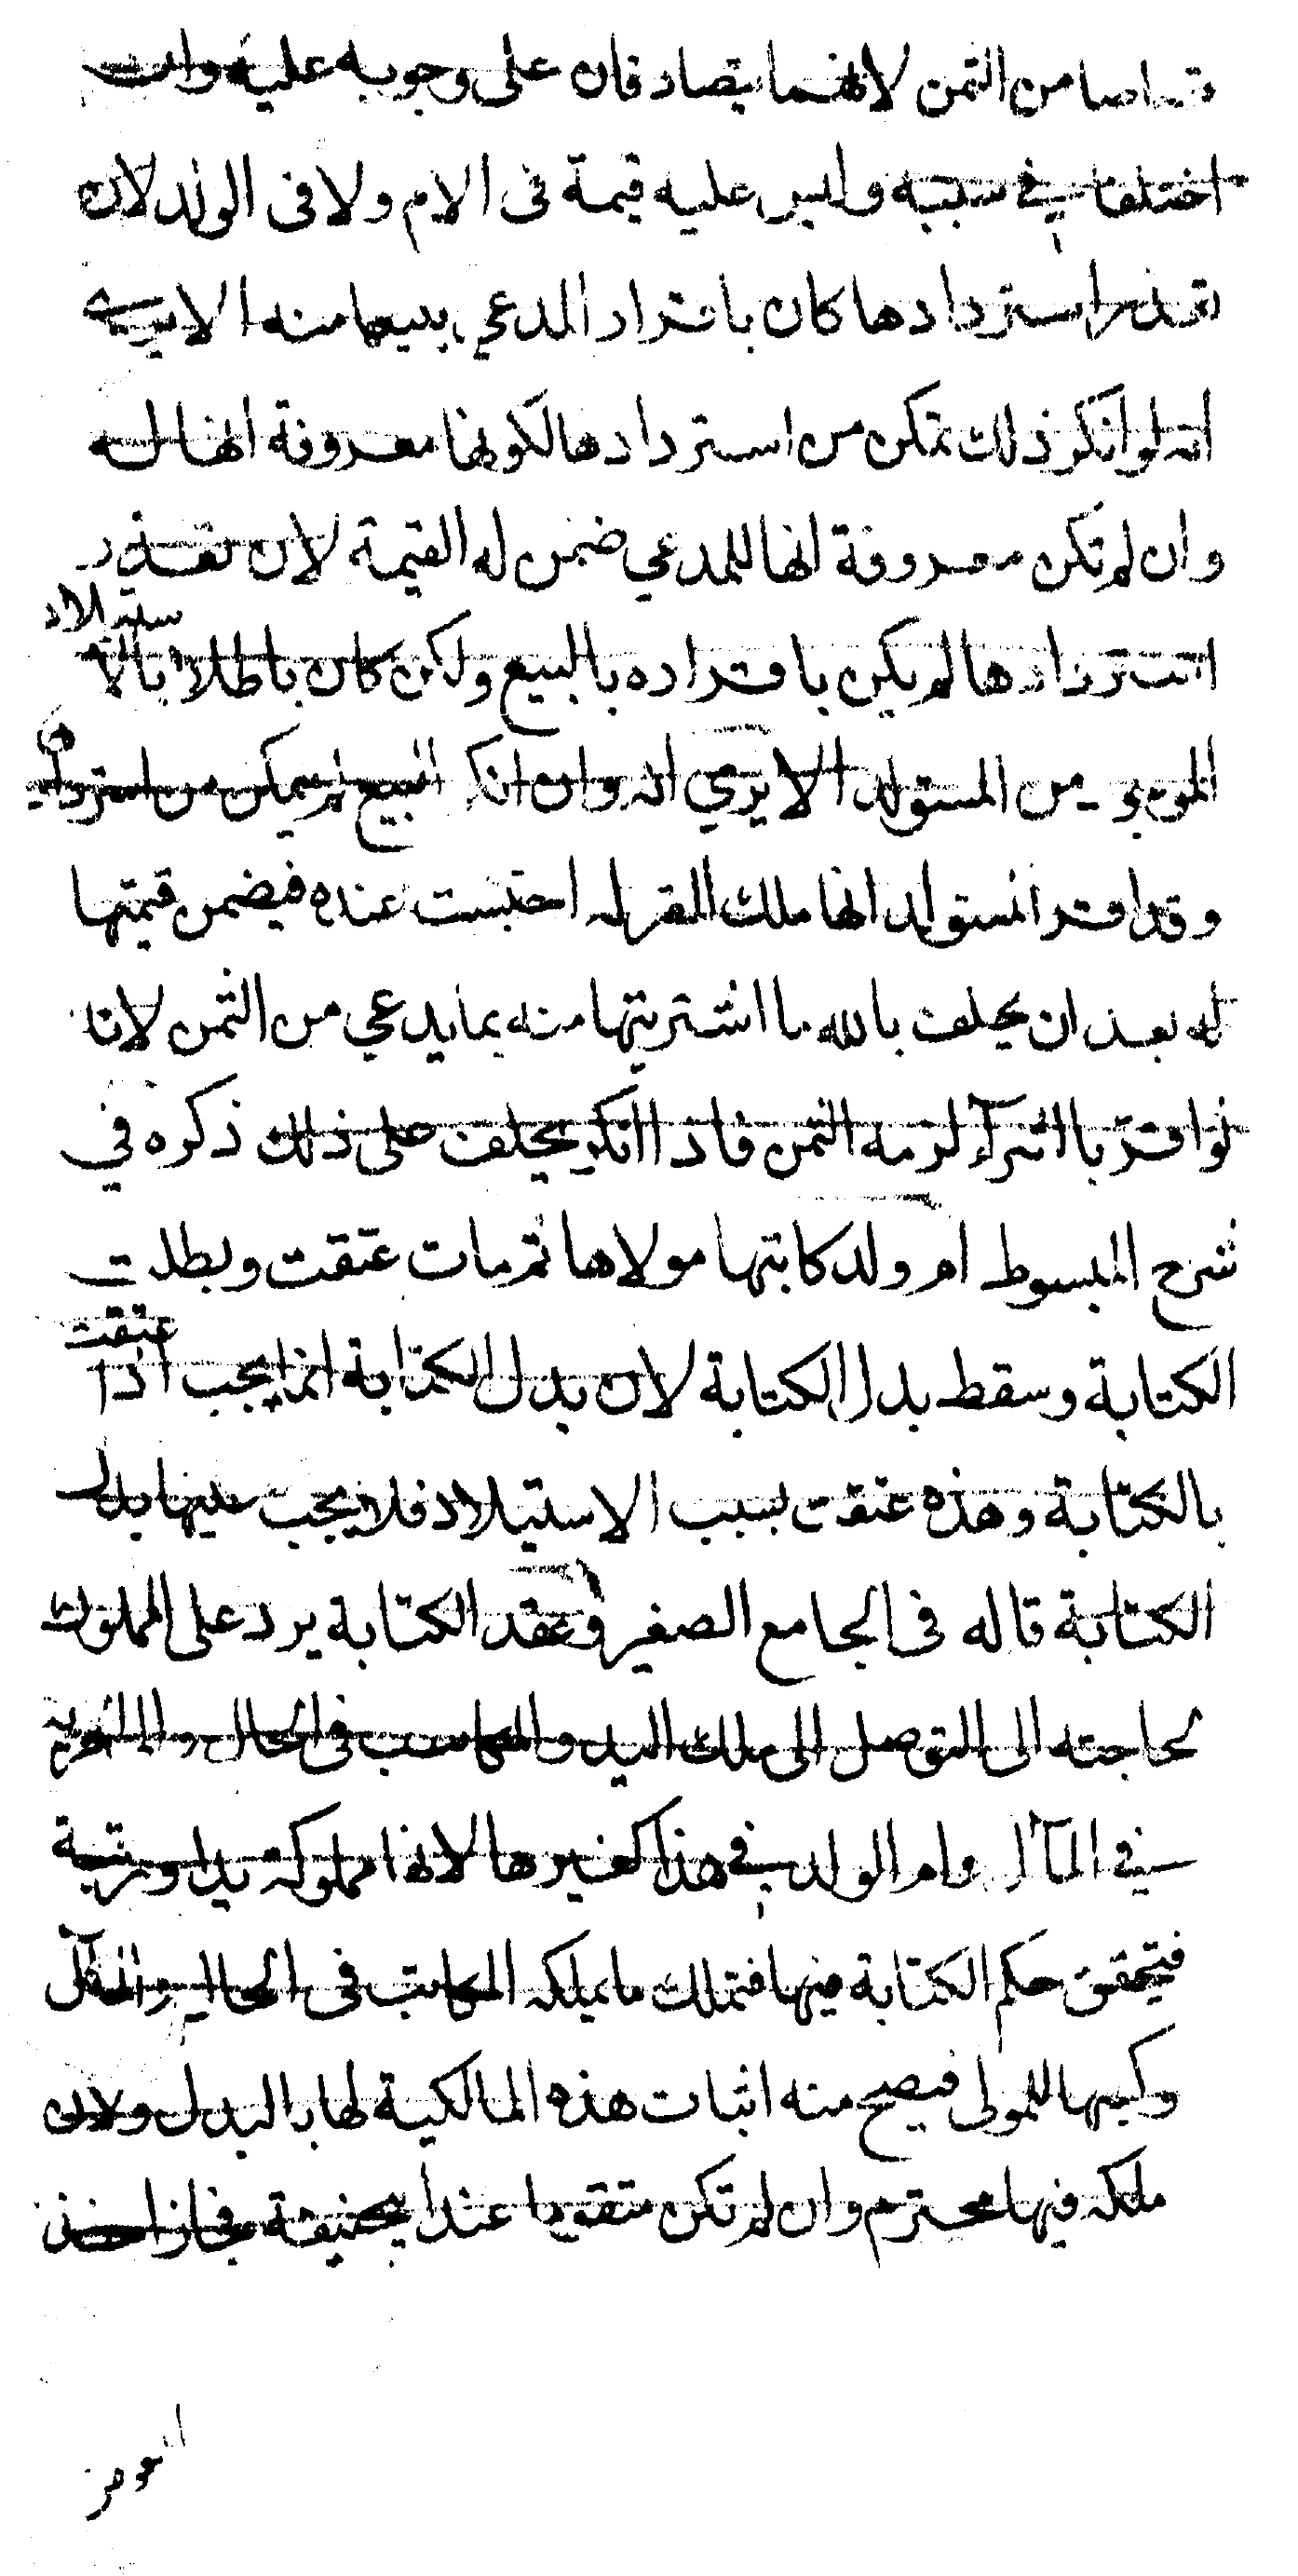 قصاصا من الثمن لانهما يتصادقان على وجوبه عليه وان
اختلفا في سببه وليس عليه قيمة فى الام ولا فى الولد لان
تعذر استردادها كان باقرار المدعي ببيعها منه الا يرى
انه لو انكر ذلك تمكن من استردادها لكونها معروفة انها له
وان لم تكن معروفة انها للمدعي ضمن له القيمة لان تعذر
استردادها لم يكن باقراره بالبيع ولكن كان باطلا بالاستيلاد
من المستولد الا يري انه وان انكر البيع لم يتمكن من استردادها
وقد اقر المستولد انها ملك المقر له احتبست عنده فيضمن قيمتها
له بعد ان يحلف بالله ما اشتريتها منه بما يدعي من الثمن لانا
لو اقر بالشرآء لزمه الثمن فاذا انكر يحلف على ذلك ذكره في
شرح المبسوط ام ولد كاتبها مولاها ثم مات عتقت وبطلت
الكتابة وسقط بدل الكتابة لان بدل الكتابة انما يجب اذا عتقت
بالكتابة وهذه عتقت بسبب الاستيلاد فلا يجب عليها بدل
الكتابة قاله فى الجامع الصغير وعقد الكتابة يرد على المملوك
لحاجته الى التوصل الى ملك اليد والمكاسب فى الحال والحرية
في المآل وام الولد في هذا كغيرها لانها مملوكة يدا ورقبة
فيتحقق حكم الكتابة فيها فتملك ما يملكه المكاتب فى الحال والمآل
وكسبها للمولى فيصح منه اثبات هذه المالكية لها بالبدل ولان
ملكه فيها محترم وان لم تكن متقوما عند ابيحنيفة فجاز اخذ